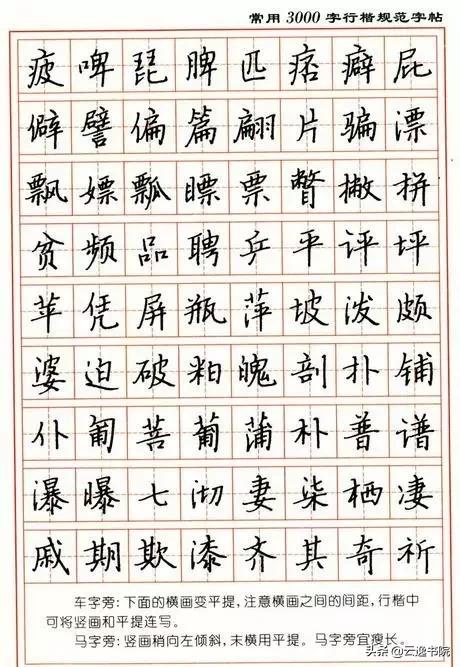 常用3000字行楷规范字帖
疲啤琵脾匹痞癖屁
僻譬偏篇翩片骗漂
飘嫖瓢瞟票瞥撇拼
贫频品聘乒平评坪
苹凭屏瓶萍坡泼颇
婆迫破粕魄剖扑铺
仆匍菩葡蒲朴普谱
瀑曝七沏妻柒栖凄
戚期欺漆齐其奇祈
车字旁:下面的横画变平提,注意横画之间的间距,行楷中
可将竖画和平提连写。
马字旁:竖画稍向左倾斜,末横用平提。马字旁宜瘦长。
头条@云逸书院